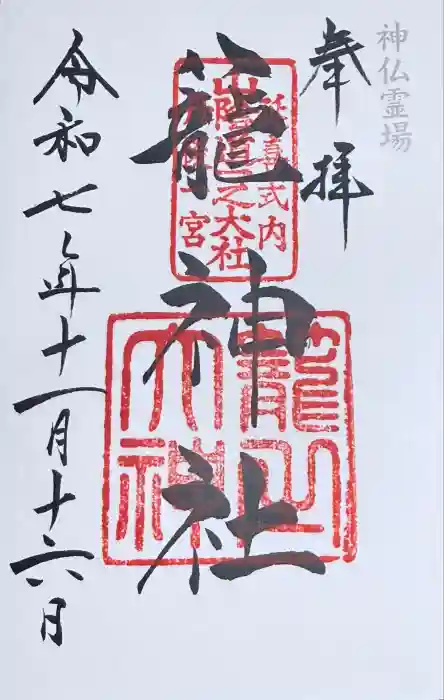 神仏霊場
奉拝
延喜式内
山陰道一之大社
宮
籠神社
籠之大神
令和七年十一月十六日